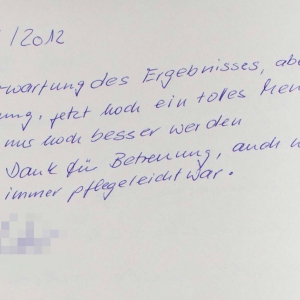 /2012
wartung des Ergebnisses, abe
ung, jetzt noch ein tolles Men
nur noch besser werden
Dank für Betreuung, auch w
immer pflegeleicht war.